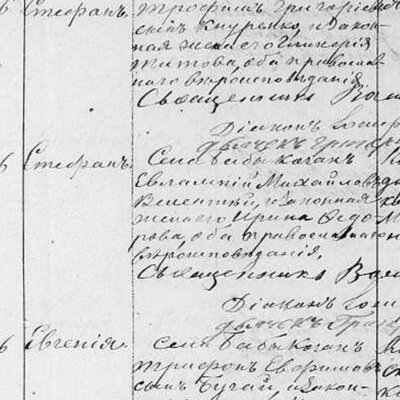 6 Стефанъ. Трофимъ Григорьев
скiй Кнуренко, и закон-
ная жена его Гликерiя
Титова, оба православ-
наго вѣроисповѣданiя
Священникъ
Дiаконъ
дьячекъ Григор
6 Стефанъ. Села Бабы козакъ
Евлампiй Михайловъ
и законная
жена его Ирина Ѳедо-
рова, оба православнаго
вѣроисповѣданiя,
Священникъ
Дiаконъ
дьячекъ Григор
6 Евгенiя. Села Бабы козакъ
Трифонъ Евфимов
сынъ Бугай, и закон-